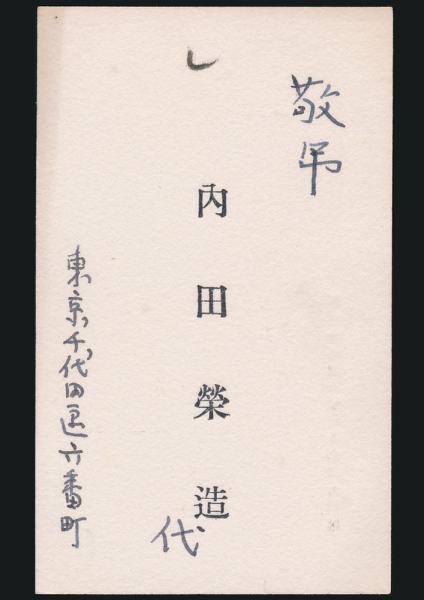 敬弔
内田榮造
代
東京千代田區六番町